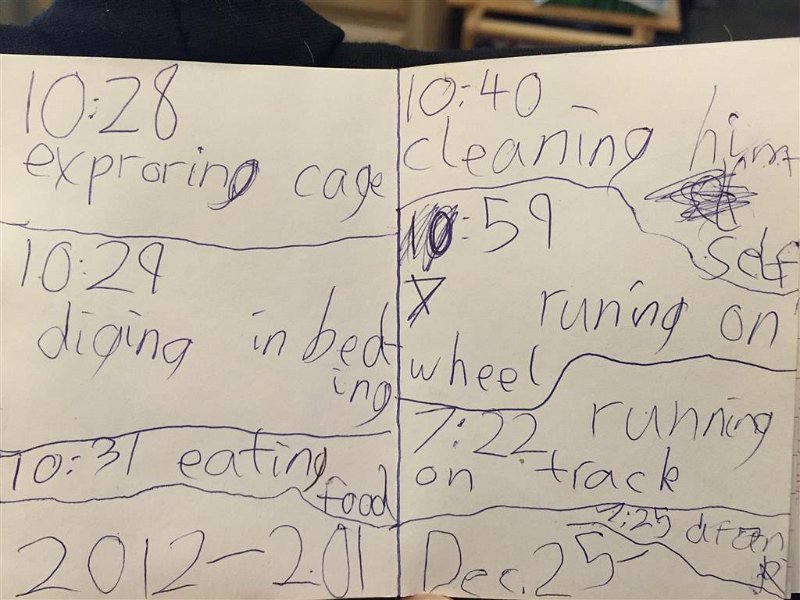 10:28
exproring cage
10:29
diging in bed-
ing
10:31 eating
food
2012-201
10:40
cleaning him
self
:59
7
runing on
wheel
7:22 running
on track
7:25
Dec. 25-